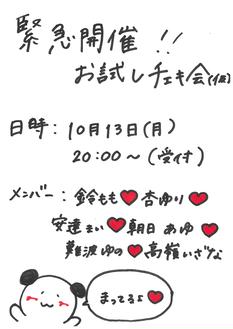 緊急開催!!
お試しチェキ会(仮)
日時：10月13日(月)
20:00〜(受付)
メンバー：鈴もも♥杏ゆり♥
安達まい♥朝日あゆ♥
難波ゆの♥高嶺いざな
まってるよ♥